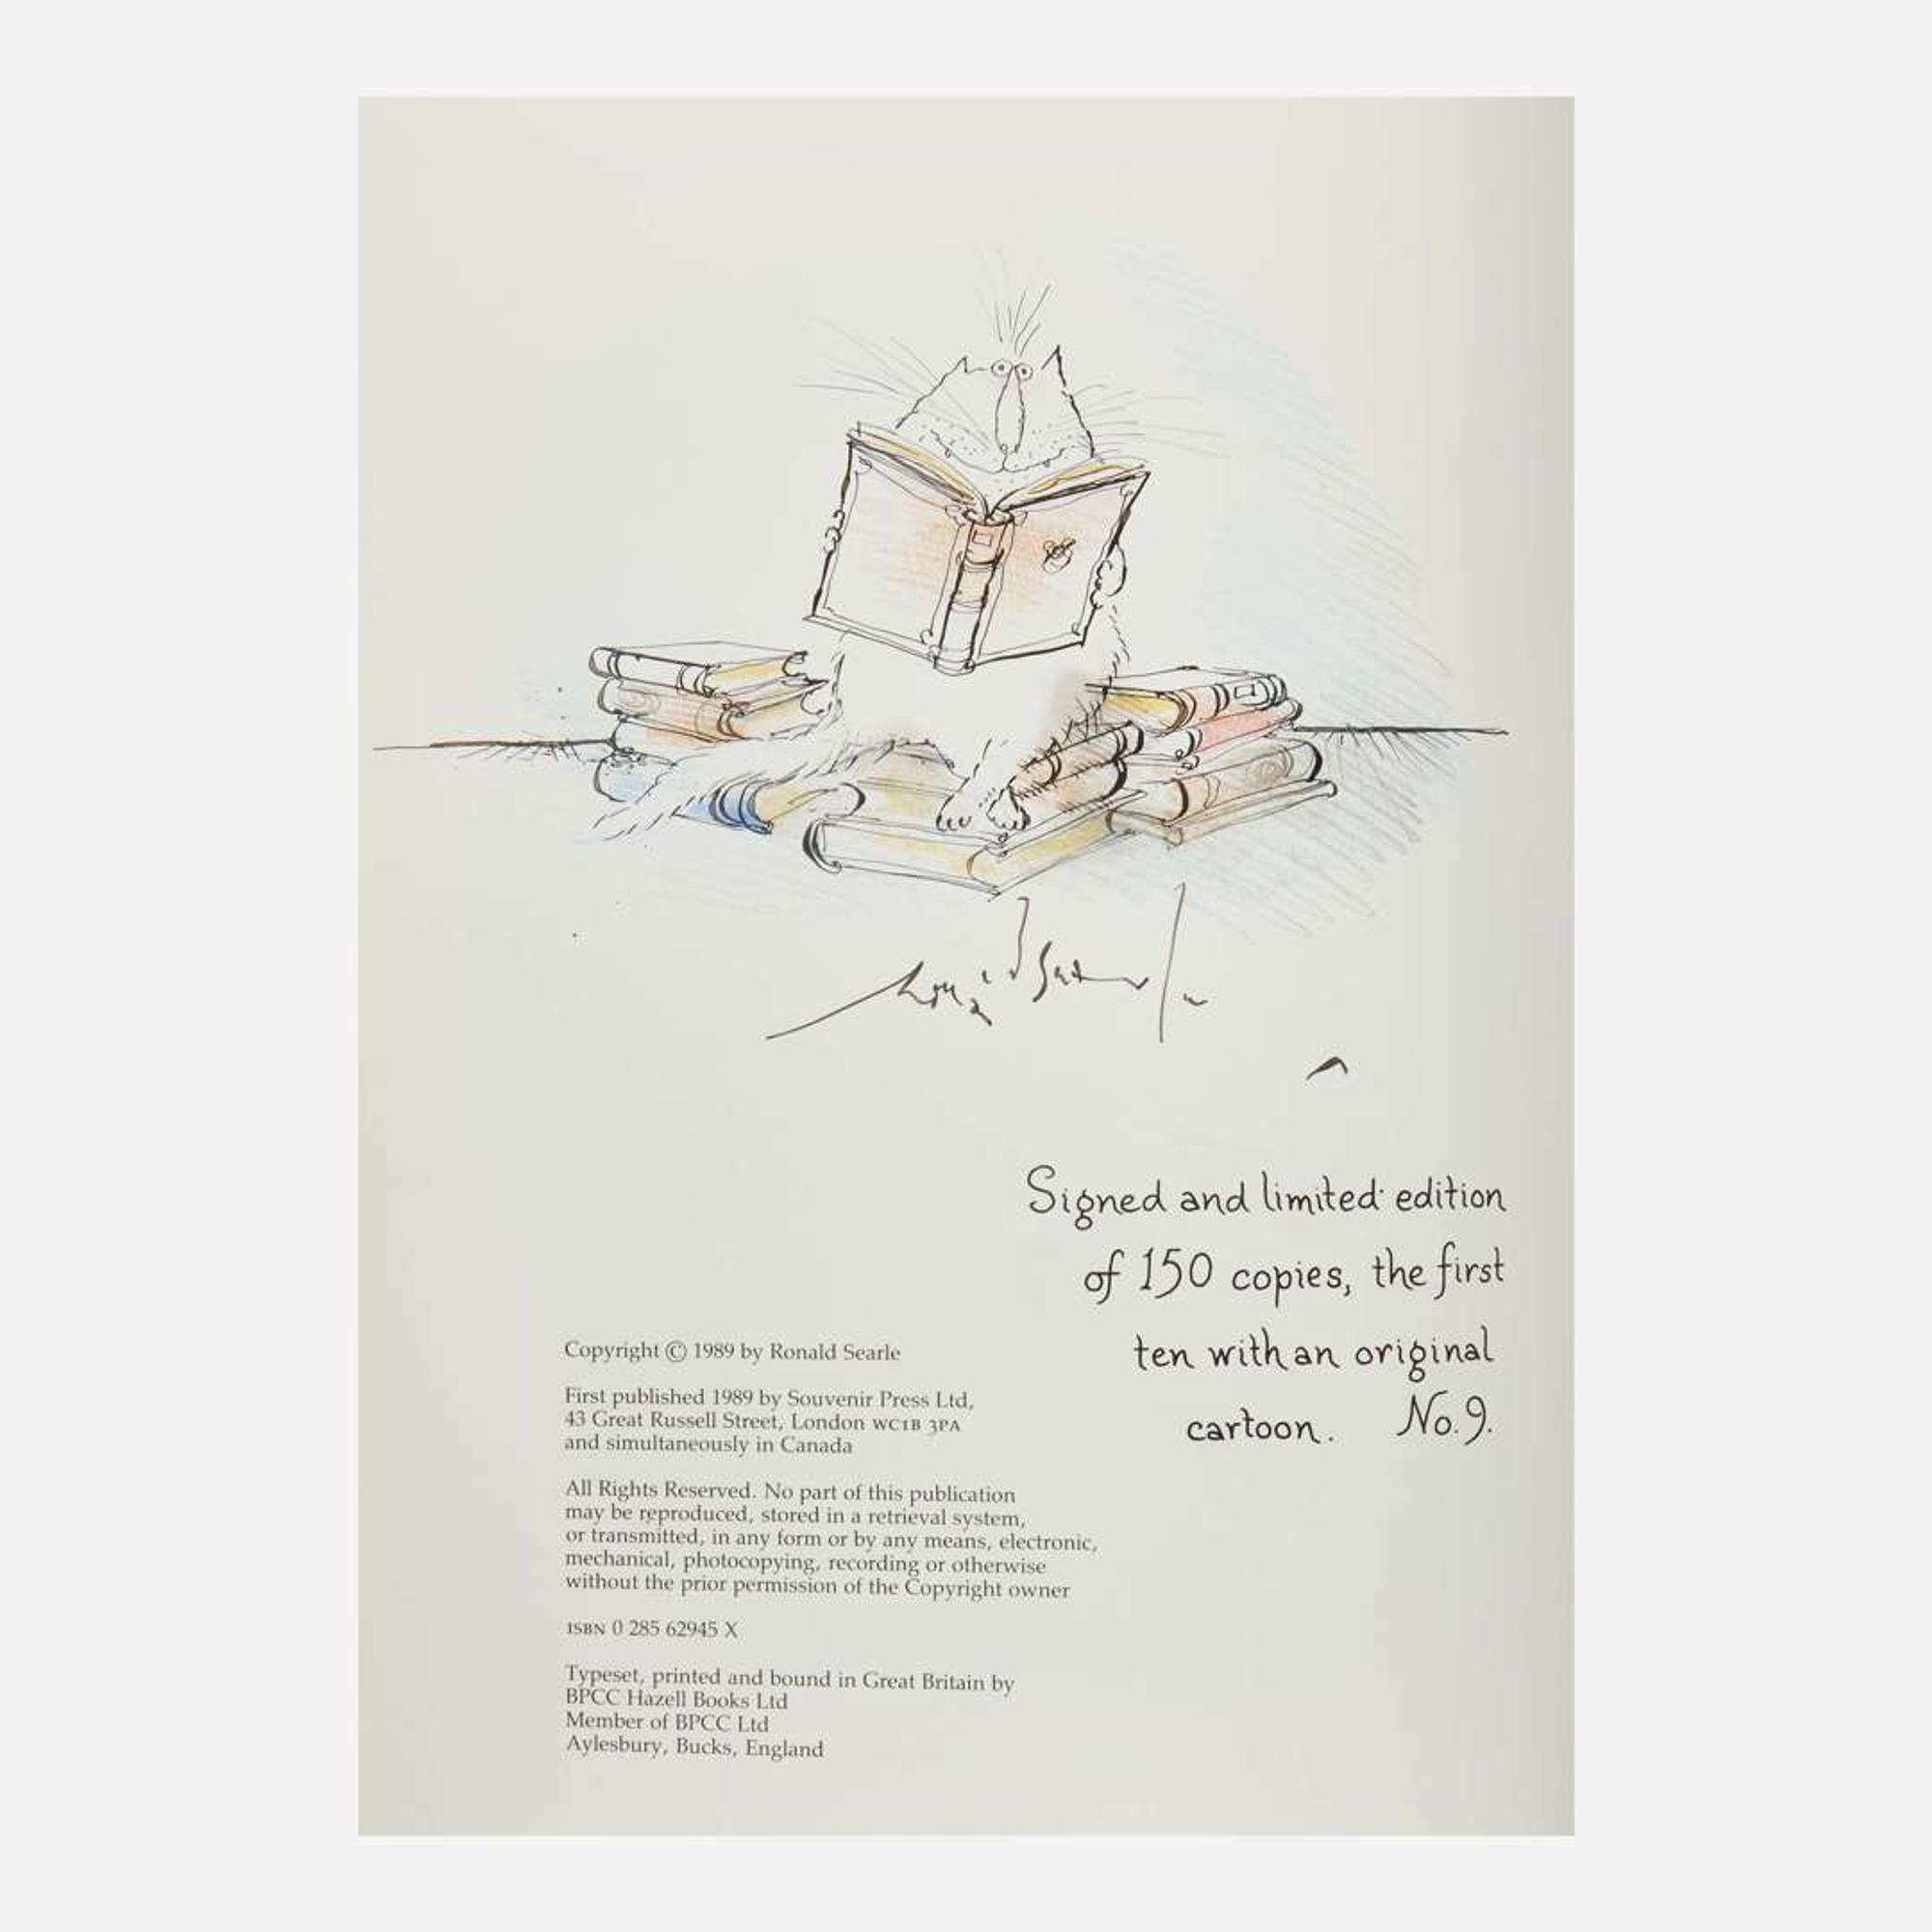 Ronald Searle
Signed and limited edition
of 150 copies, the first
ten with an original
cartoon. No. 9.
Copyright © 1989 by Ronald Searle
First published 1989 by Souvenir Press Ltd,
43 Great Russell Street, London WC1B 3PA
and simultaneously in Canada
All Rights Reserved. No part of this publication
may be reproduced, stored in a retrieval system,
or transmitted, in any form or by any means, electronic,
mechanical, photocopying, recording or otherwise
without the prior permission of the Copyright owner
ISBN 0 285 62945 X
Typeset, printed and bound in Great Britain by
BPCC Hazell Books Ltd
Member of BPCC Ltd
Aylesbury, Bucks, England